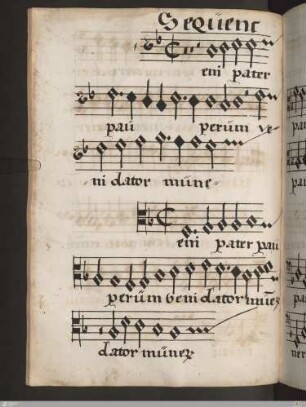 Sequenc
eni pater
pau perum ve
ni dator mune
eni pater pau
perum veni dator mune
dator munerz